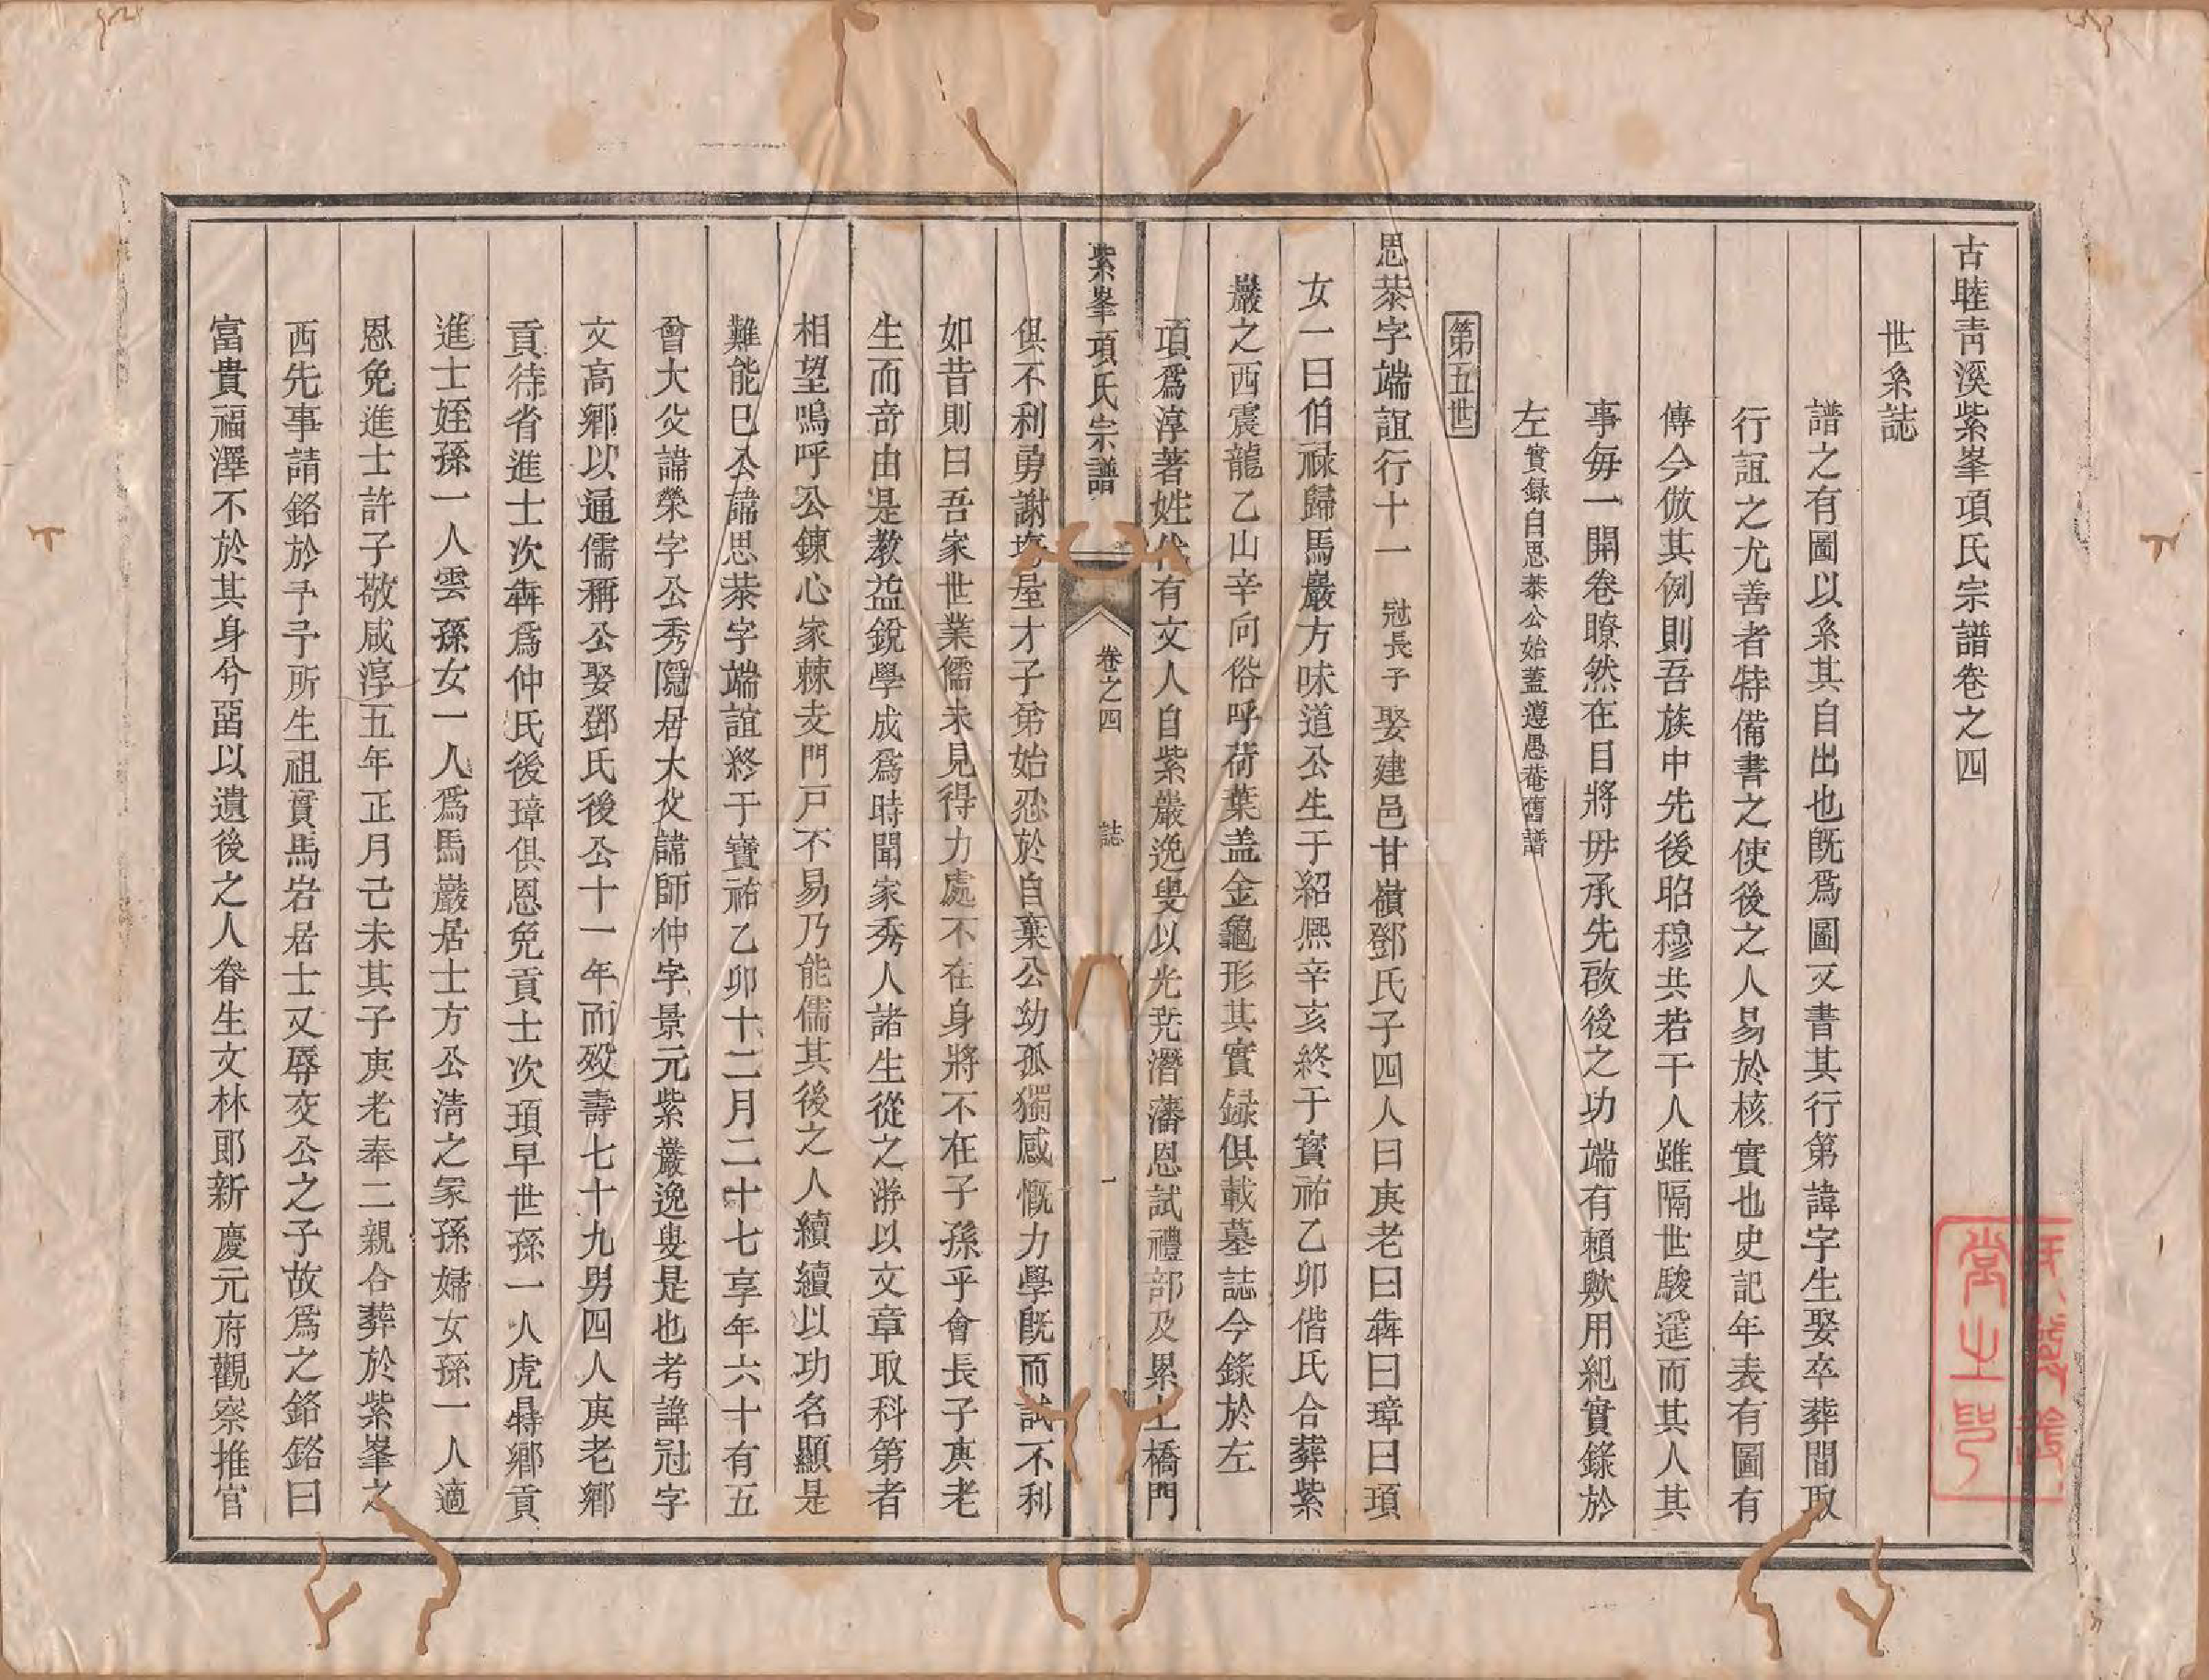 古睦青溪紫峯項氏宗譜卷之四
世系誌
譜之有圖以系其自出也既爲圖又書其行第諱字生娶卒葬間取
行誼之尤善者特備書之使後之人易於核實也史記年表有圖有
傳今倣其例則吾族中先後昭穆共若干人雖隔世駿遥而其人其
事每一開卷瞭然在目將毋承先啟後之功端有賴歟用紀實錄於
左實録自思恭公始蓋遵愚菴舊譜
第五世
思恭字端誼行十一冠長子娶建邑甘嶺鄧氏子四人曰庚老曰犇曰璋曰頊
女一曰伯祿歸馬巖方味道公生于紹熙辛亥終于寳祐乙卯偕氏合葬紫
巖之西震龍乙山辛向俗呼荷葉盖金龜形其實録俱載墓誌今錄於左
項爲淳著姓代有文人自紫巖逸叟以光尭潛藩恩試禮部及累上橋門
俱不利勇謝塲屋才子弟始忍於自棄公幼孤獨感慨力學既而試不利
如昔則曰吾家世業儒未見得力處不在身將不在子孫乎會長子庚老
生而奇由是教益銳學成爲時聞家秀人諸生從之游以文章取科第者
相望嗚呼公鍊心家棘支門戸不易乃能儒其後之人續續以功名顯是
難能已公諱思恭字端誼終于寶祐乙卯十二月二十七享年六十有五
曾大父諱榮字公秀隱居大父諱師仲字景元紫巖逸叟是也考諱冠字
文高鄉以通儒稱公娶鄧氏後公十一年而歿壽七十九男四人庚老鄉
貢待省進士次犇爲仲氏後璋俱恩免貢士次頊早世孫一人虎特鄉貢
進士姪孫一人雲孫女一人爲馬巖居士方公淸之冢孫婦女孫一人適
恩免進士許子敬咸淳五年正月己未其子庚老奉二親合葬於紫峯之
西先事請銘於予予所生祖實馬岩居士又辱交公之子故爲之銘銘曰
富貴福澤不於其身兮畱以遺後之人眷生文林郎新慶元府觀察推官
紫峯項氏宗譜
卷之四
誌
一
堂之印